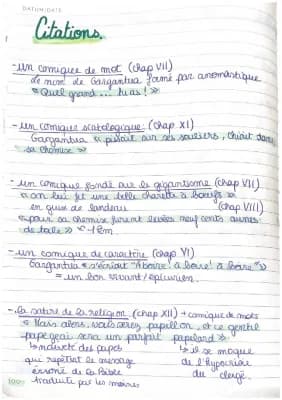 DATUM/DATE
Citations.
- un comique de mot (chap VII)
le nom de Gargantua formé par onomastique
« Quel grand ... tu as ! »
- un comique scatologique (chap XI)
Gargantua « pissait sur ses souliers, chiait dans
sa chemise »
- un comique fondé sur le gigantisme (chap VII)
« on lui fit une belle charette à boeufs »
en guise de landau (chap VIII)
« pour sa chemise furent levées neuf cents aunes
de toile »
- un comique de caractère (chap VI)
Gargantua « s'écriait "A boire ! à boire ! à boire" »
= un bon vivant / épicurien.
- la satire de la religion (chap XII) + comique de mots
« Mais alors, vous serez papillon, et ce gentil
papegeai sera un parfait papelard »
↳ naiveté des papes ↳ il se moque
qui répètent le message de l'hypocrisie
erroné de la Bible du clergé.
traduite par les moines